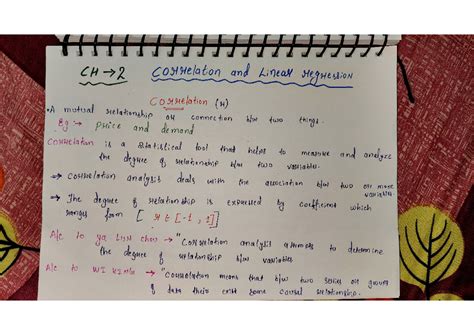 CH → 2 Correlaton and Linear regression
Correlation (r)
• A mutual relationship or connection b/w two things.
Eg :→ price and demand
Correlation is a statistical tool that helps to measure and analyze
the degree of relationship b/w two variables.
→ correlation analysis deals with the association b/w two or more variables.
→ The degree of relationship is expressed by coefficient which
ranges from [ r ∈ [-1, 1] ]
A/c to ya Lun chou → "Correlation analysis attempts to determine
the degree of relationship b/w variables
A/c to W I King → "Correlation means that b/w two series or group
of data their exist some causal relationship.